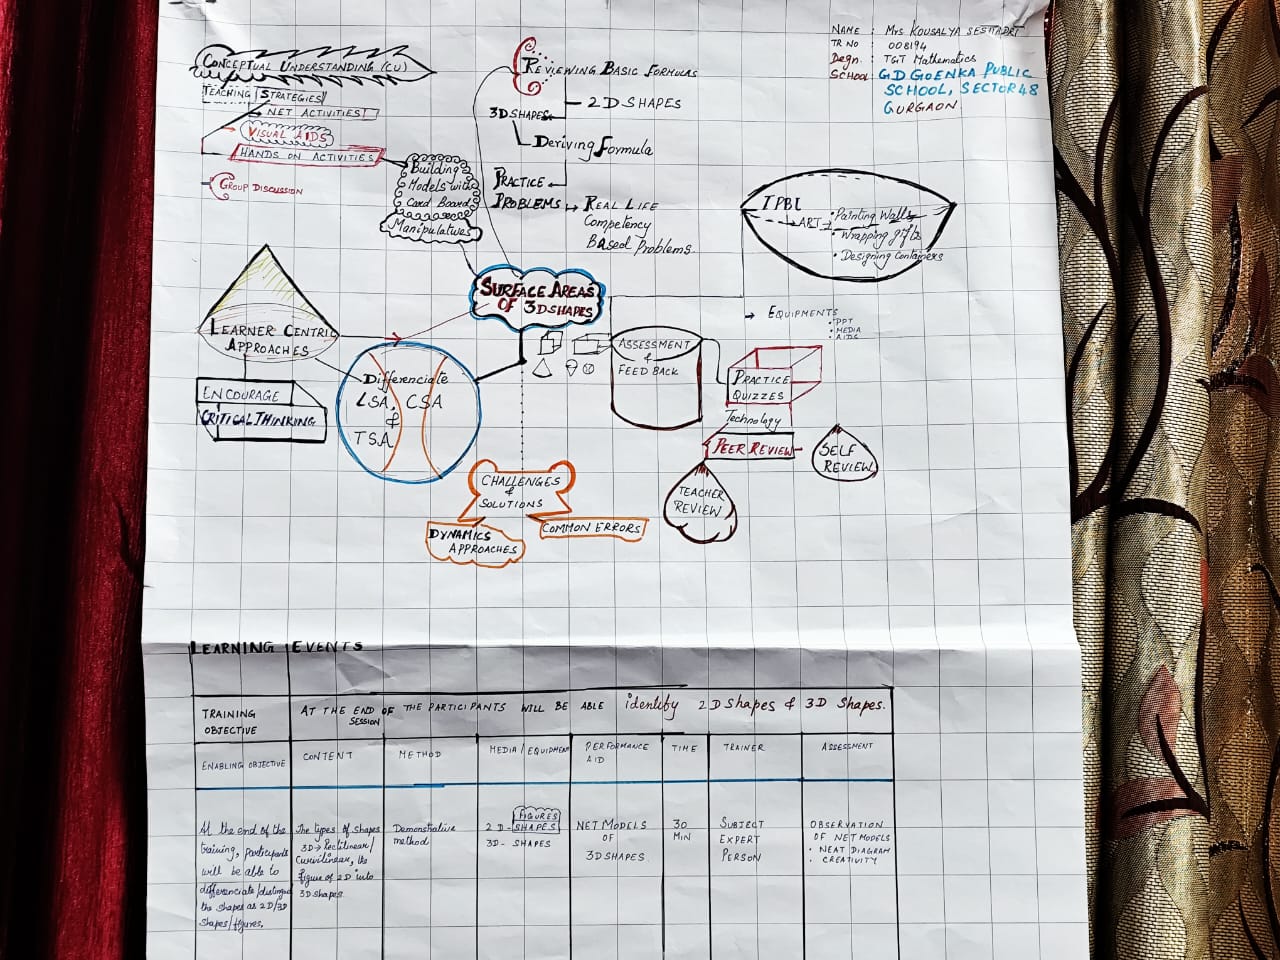 NAME : Mrs KOUSALYA SESHADRI
TR NO : 008194
Degn. : TGT Mathematics
SCHOOL : G D GOENKA PUBLIC
SCHOOL, SECTOR 48
GURGAON
CONCEPTUAL UNDERSTANDING (CU)
TEACHING STRATEGIES
NET ACTIVITIES
VISUAL AIDS
HANDS ON ACTIVITIES
GROUP DISCUSSION
Building
Models with
Card Board
Manipulatives
REVIEWING BASIC FORMULAS
2D SHAPES
3D SHAPES
Deriving Formula
PRACTICE
PROBLEMS
REAL LIFE
Competency
Based Problems
SURFACE AREAS
OF 3D SHAPES
ART
• Painting Walls
• Wrapping gifts
• Designing Containers
EQUIPMENTS
• PPT
• MEDIA
• AIDS
LEARNER CENTRIC
APPROACHES
ENCOURAGE
CRITICAL THINKING
Differenciate
LSA, CSA
&
TSA
ASSESSMENT
&
FEED BACK
PRACTICE
QUIZZES
Technology
PEER REVIEW
SELF
REVIEW
TEACHER
REVIEW
CHALLENGES
&
SOLUTIONS
DYNAMICS
APPROACHES
COMMON ERRORS
LEARNING EVENTS
TRAINING
OBJECTIVE
AT THE END OF THE PARTICIPANTS WILL BE ABLE identify 2D shapes & 3D Shapes.
SESSION
ENABLING OBJECTIVE
CONTENT
METHOD
MEDIA / EQUIPMENT
PERFORMANCE
AID
TIME
TRAINER
ASSESSMENT
At the end of the
training, participants
will be able to
differenciate/distinguish
the shapes as 2D/3D
shapes/figures.
The types of shapes
3D → Rectilinear/
Curvilinear, the
figure of 2D into
3D shapes.
Demonstrative
method
FIGURES
2 D - SHAPES
3D - SHAPES
NET MODELS
OF
3D SHAPES
30
MIN
SUBJECT
EXPERT
PERSON
OBSERVATION
OF NET MODELS
• NEAT DIAGRAM
• CREATIVITY